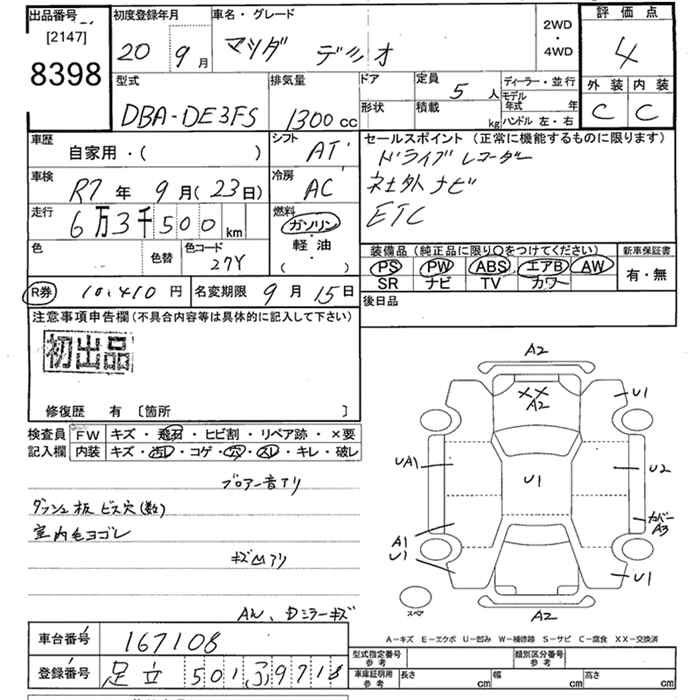 出品番号
[2147]
8398
初度登録年月
20 9月
車名・グレード
マツダ デミオ
2WD
・
4WD
評価点
4
外装 内装
C C
型式
DBA-DE3FS
排気量
1300cc
ドア
形状
定員
5人
積載
kg
ディーラー・並行
モデル
年式 年
ハンドル 左・右
車歴
自家用・( )
シフト
AT
セールスポイント (正常に機能するものに限ります)
ドライブレコーダー
社外ナビ
ETC
車検
R7年9月(23日)
冷房
AC
走行
6万3千500km
燃料
ガソリン
・
軽油
( )
色
色替
色コード
27Y
装備品(純正品に限り○をつけてください)
PS PW ABS エアB AW
SR ナビ TV カワ
新車保証書
有・無
R券 10,410円
名変期限 9月15日
後日品
注意事項申告欄(不具合内容等は具体的に記入して下さい)
初出品
修復歴 有 〔箇所 〕
検査員
記入欄
FW キズ・飛石・ヒビ割・リペア跡・×要
内装 キズ・汚レ・コゲ・穴・スレ・キレ・破レ
ブロアー音アリ
ダッシュ板 ビス穴(数)
室内毛ヨゴレ
キズ凹アリ
AW、Dミラーキズ
A2
XX
A2
U1
UA1
U1
U2
A1
U1
カバー
A3
U1
スペア
A2
A-キズ E-エクボ U-凹み W-補修跡 S-サビ C-腐食 XX-交換済
車台番号 167108
登録番号 足立 501 ふ 9718
型式指定番号
参考
類別区分番号
参考
車庫証明用
参考
長さ cm
幅 cm
高さ cm